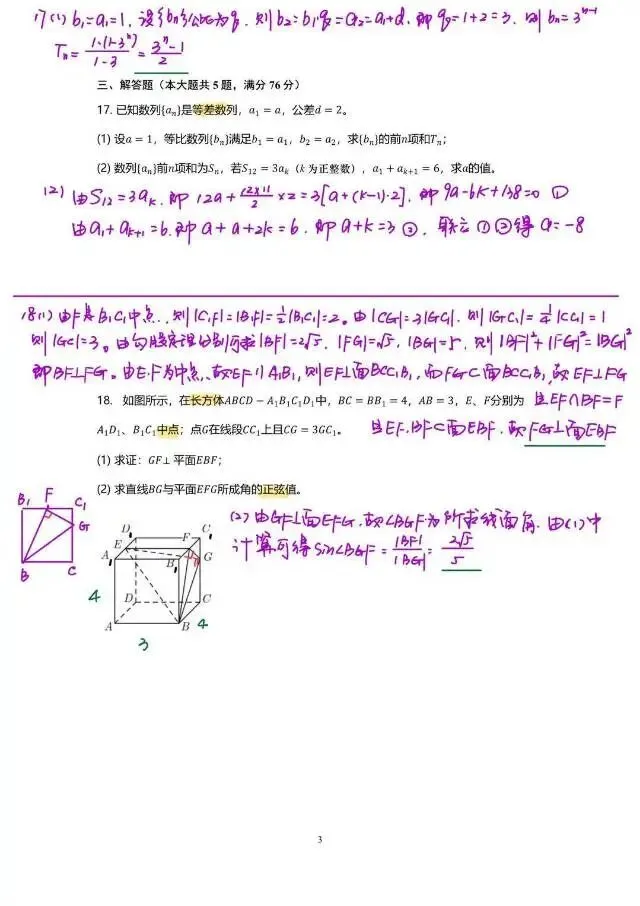 17(1) b₁=a₁=1, 设{bₙ}公比为q, 则b₂=b₁·q=a₂=a₁+d, 即q=1+2=3, 则bₙ=3ⁿ⁻¹
Tₙ=1·(1-3ⁿ)/(1-3)=(3ⁿ-1)/2
三、解答题（本大题共 5 题，满分 76 分）
17. 已知数列{aₙ}是等差数列，a₁ = a，公差d = 2。
(1) 设a = 1，等比数列{bₙ}满足b₁ = a₁，b₂ = a₂，求{bₙ}的前n项和Tₙ；
(2) 数列{aₙ}前n项和为Sₙ，若S₁₂ = 3aₖ（k 为正整数），a₁ + aₖ₊₁ = 6，求a的值。
(2) 由S₁₂=3aₖ, 即12a+(12×11)/2×2=3[a+(k-1)·2], 即9a-6k+138=0 ①
由a₁+aₖ₊₁=6, 即a+a+2k=6, 即a+k=3 ②, 联立①②得a=-8
18(1) 由F是B₁C₁中点, 则|C₁F|=|B₁F|=½|B₁C₁|=2。由|CG|=3|GC₁|, 则|GC₁|=¼|CC₁|=1
则|GC|=3。由勾股定理分别可求|BF|=2√5, |FG|=√5, |BG|=5, 则|BF|²+|FG|²=|BG|²
即BF⊥FG。由E.F为中点, 故EF∥A₁B₁, 则EF⊥面BCC₁B₁, 而FG⊂面BCC₁B₁, 故EF⊥FG
18. 如图所示，在长方体ABCD − A₁B₁C₁D₁中，BC = BB₁ = 4，AB = 3，E、F分别为 且EF∩BF=F
A₁D₁、B₁C₁中点；点G在线段CC₁上且CG = 3GC₁。 且EF.BF⊂面EBF, 故FG⊥面EBF
(1) 求证：GF⊥平面EBF；
(2) 求直线BG与平面EFG所成角的正弦值。
(2) 由GF⊥面EFG, 故∠BGF为所求线面角, 由(1)中
计算可得sin∠BGF=|BF|/|BG|=2√5/5
B₁ F C₁
G
B C
D₁ F C₁
E
A₁ B₁ G
4 D C
A B 4
3
3